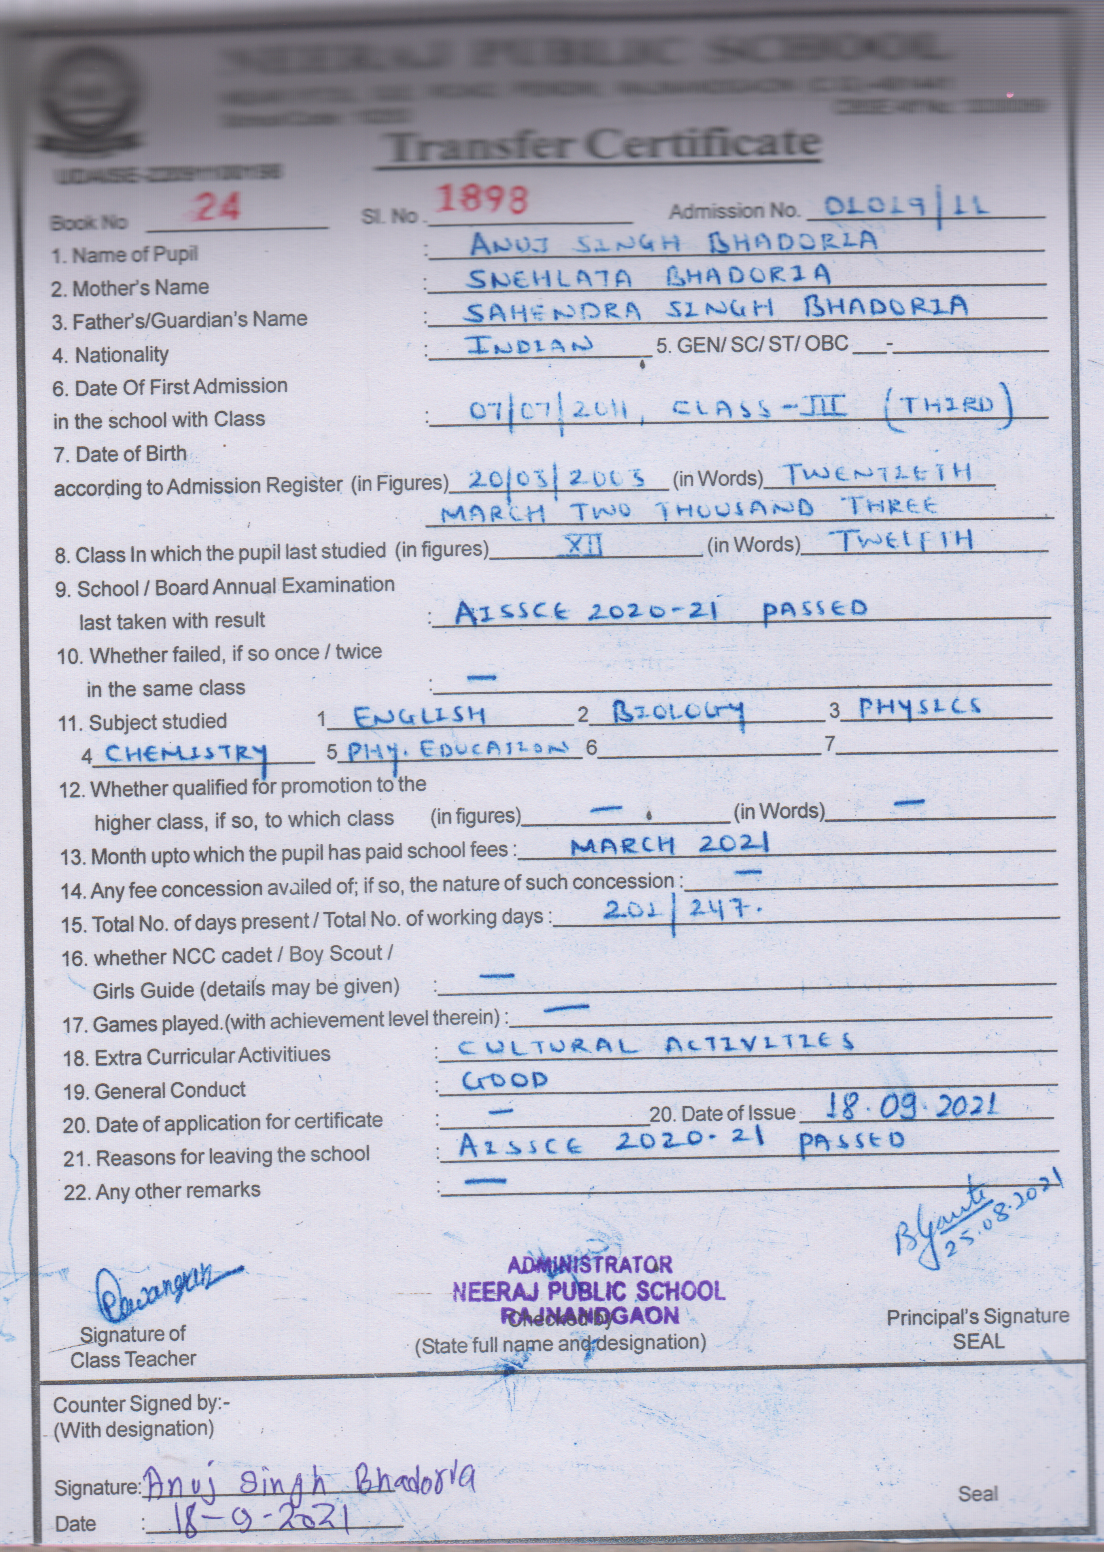 NEERAJ PUBLIC SCHOOL
Transfer Certificate
Book No 24 Sl. No. 1898 Admission No. 01019/11
1. Name of Pupil : ANUJ SINGH BHADORIA
2. Mother's Name : SNEHLATA BHADORIA
3. Father's/Guardian's Name : SAHENDRA SINGH BHADORIA
4. Nationality : INDIAN 5. GEN/ SC/ ST/ OBC -
6. Date Of First Admission
in the school with Class : 07/07/2011, CLASS-III (THIRD)
7. Date of Birth
according to Admission Register (in Figures) 20/03/2003 (in Words) TWENTIETH
MARCH TWO THOUSAND THREE
8. Class In which the pupil last studied (in figures) XII (in Words) TWELFTH
9. School / Board Annual Examination
last taken with result : AISSCE 2020-21 PASSED
10. Whether failed, if so once / twice
in the same class : —
11. Subject studied 1 ENGLISH 2 BIOLOGY 3 PHYSICS
4 CHEMISTRY 5 PHY. EDUCATION 6 7
12. Whether qualified for promotion to the
higher class, if so, to which class (in figures) — (in Words) —
13. Month upto which the pupil has paid school fees : MARCH 2021
14. Any fee concession availed of; if so, the nature of such concession : —
15. Total No. of days present / Total No. of working days : 201/247.
16. whether NCC cadet / Boy Scout /
Girls Guide (details may be given) : —
17. Games played.(with achievement level therein) : —
18. Extra Curricular Activitiues : CULTURAL ACTIVITIES
19. General Conduct : GOOD
20. Date of application for certificate : — 20. Date of Issue 18.09.2021
21. Reasons for leaving the school : AISSCE 2020-21 PASSED
22. Any other remarks : —
25.08.2021
ADMINISTRATOR
NEERAJ PUBLIC SCHOOL
RAJNANDGAON
Checked by
Signature of
Class Teacher
(State full name and designation)
Principal's Signature
SEAL
Counter Signed by:-
(With designation)
Signature: Anuj Singh Bhadoria
Seal
Date : 18-9-2021